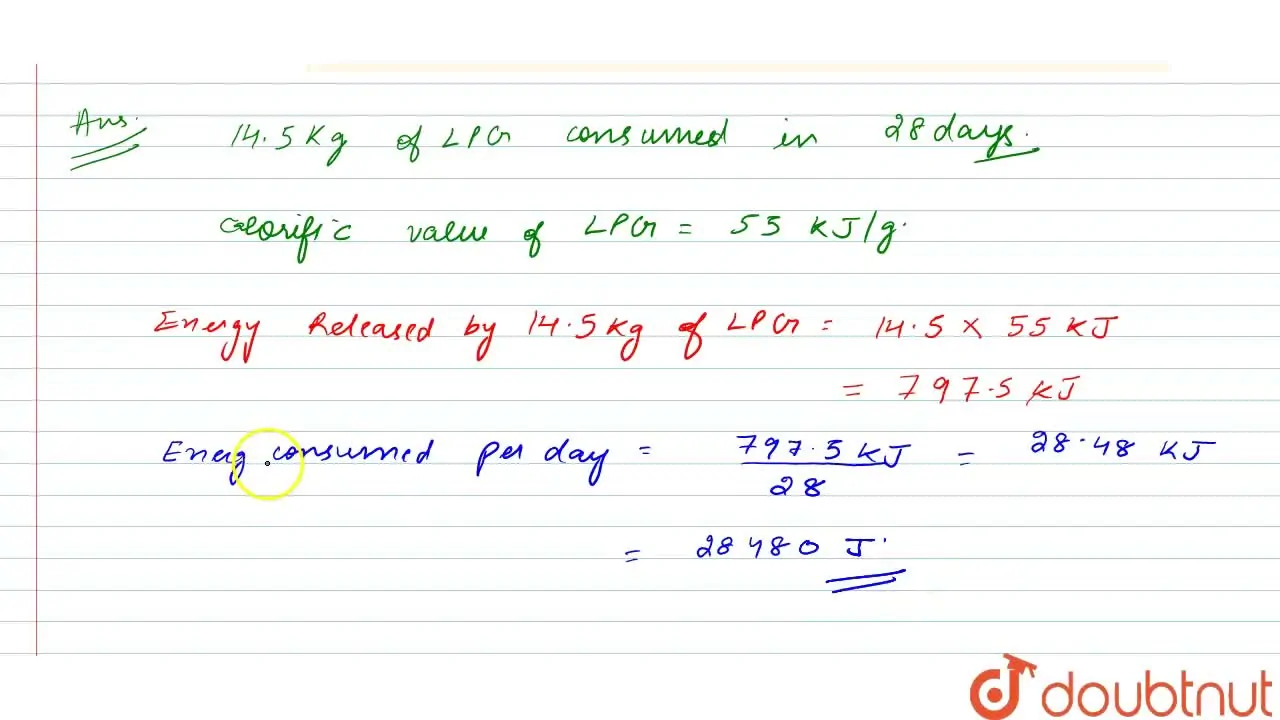 Ans.
14.5 Kg of LPG consumed in 28 days.
Calorific value of LPG = 55 KJ/g.
Energy Released by 14.5 Kg of LPG = 14.5 × 55 KJ
= 797.5 KJ
Energ consumed per day = 797.5 KJ / 28 = 28.48 KJ
= 28480 J.
doubtnut